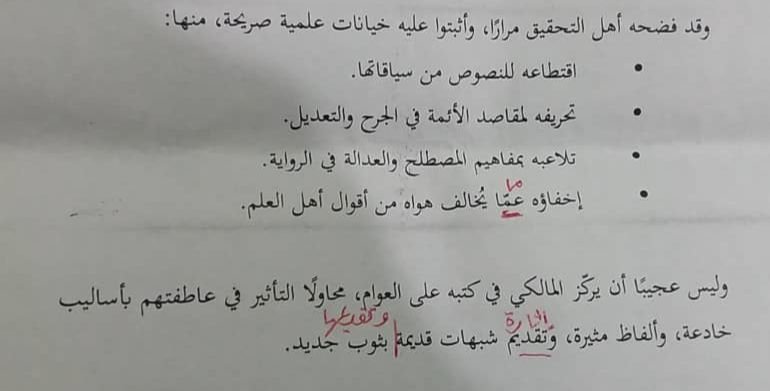 وقد فضحه أهل التحقيق مرارًا، وأثبتوا عليه خيانات علمية صريحة، منها:
• اقتطاعه للنصوص من سياقاتها.
• تحريفه لمقاصد الأئمة في الجرح والتعديل.
• تلاعبه بمفاهيم المصطلح والعدالة في الرواية.
ما
• إخفاؤه عمّا يُخالف هواه من أقوال أهل العلم.
وليس عجيبًا أن يركّز المالكي في كتبه على العوام، محاولًا التأثير في عاطفتهم بأساليب
إثارة وتقديمها
خادعة، وألفاظ مثيرة، وتقديم شبهات قديمة بثوب جديد.